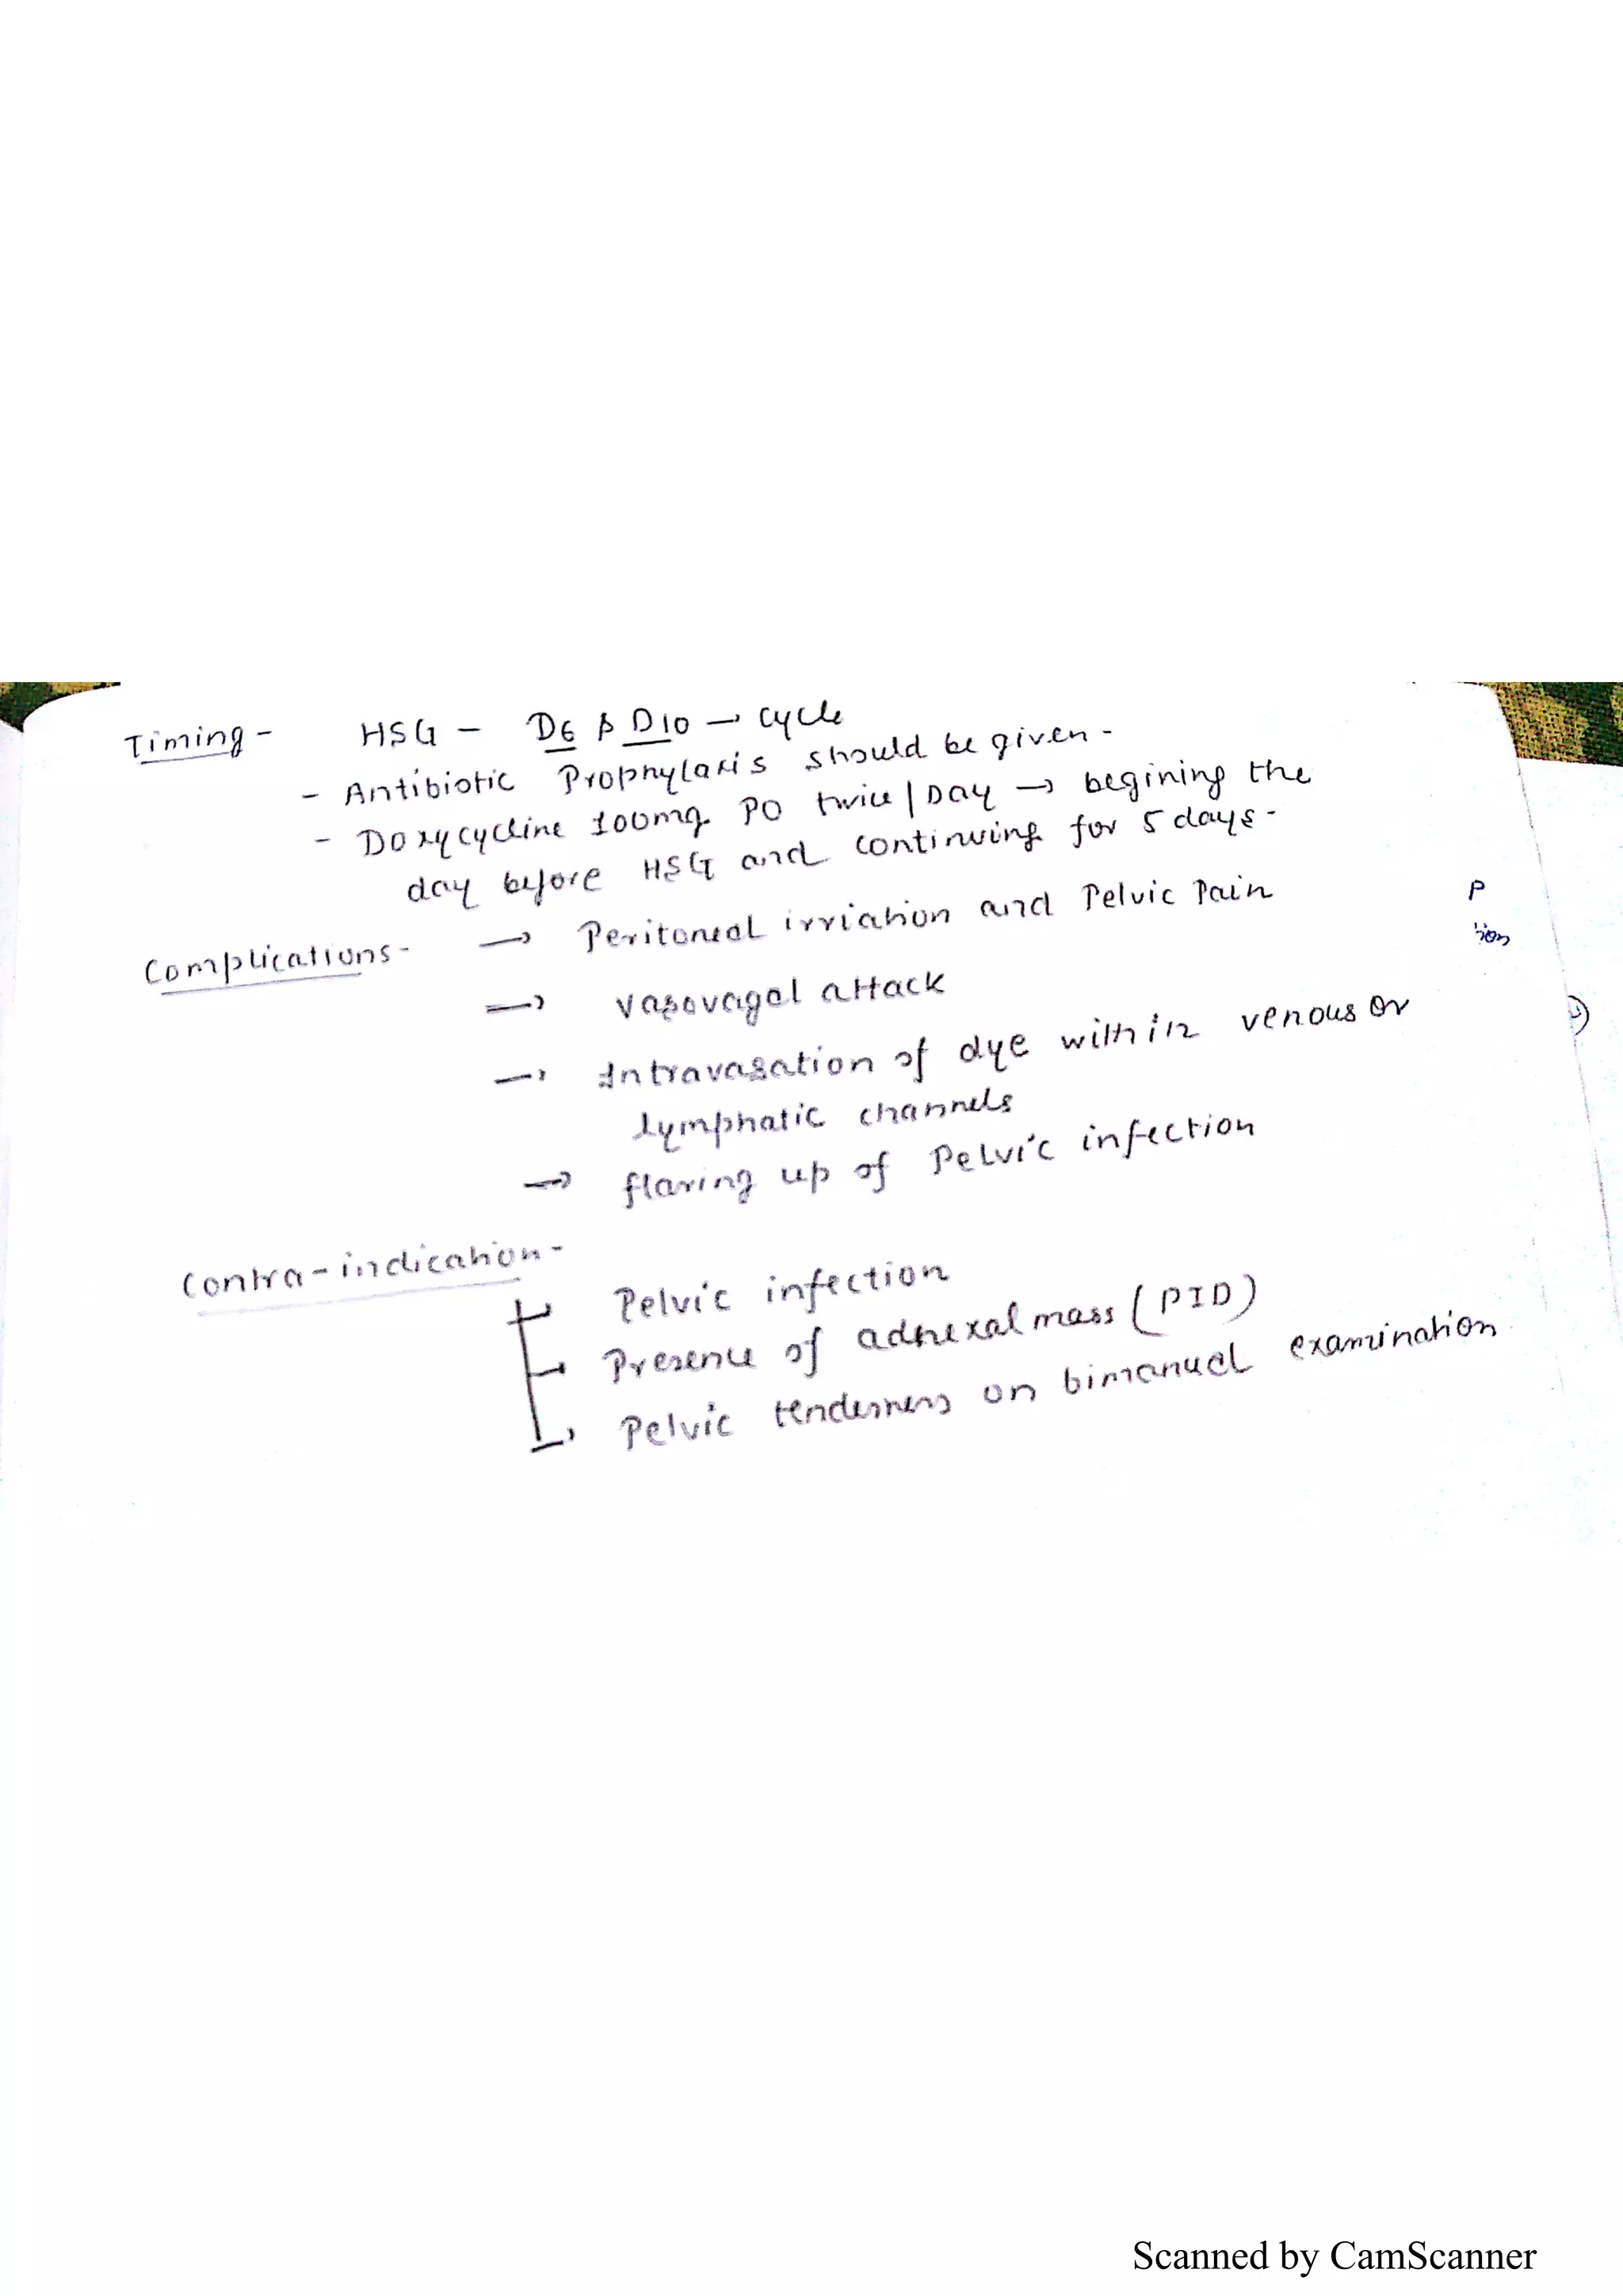 Timing - HSG - D6 & D10 → cycle
- Antibiotic Prophylaxis should be given -
- Doxycycline 100mg PO twice | Day → begining the
day before HSG and continuing for 5 days -
Complications - → Peritoneal irriation and Pelvic Pain
→ Vasovagal attack
→ Intravasation of dye within venous or
lymphatic channels
→ flaring up of Pelvic infection
Contra-indication -
→ Pelvic infection
→ Presence of adnexal mass (PID)
→ Pelvic tenderness on bimanual examination
P
ion
Scanned by CamScanner